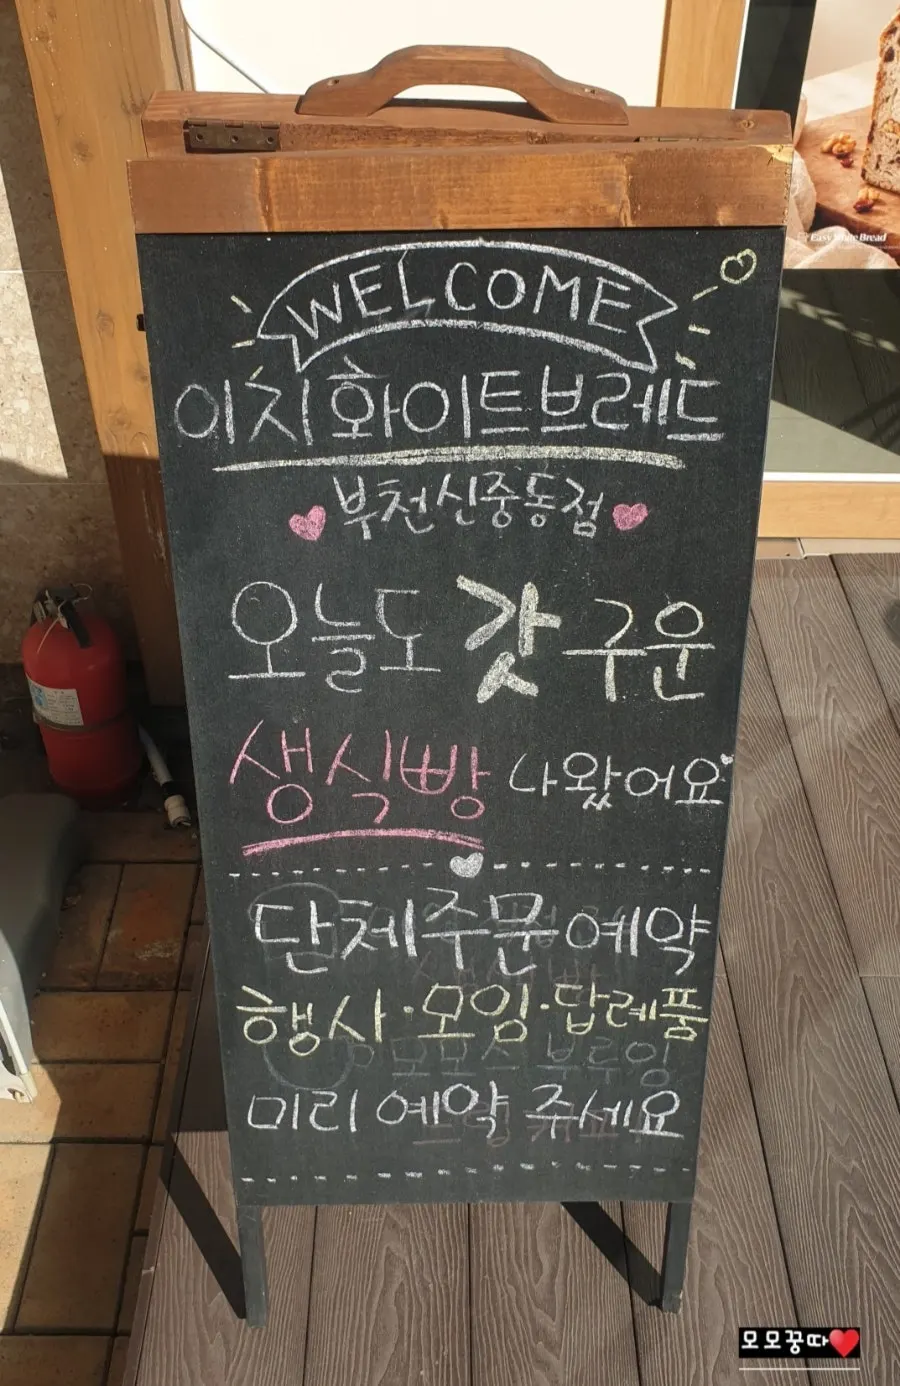 WELCOME
이지화이트브레드
부천신중동점
오늘도 갓 구운
생식빵 나왔어요
단체주문예약
행사·모임·답례품
미리 예약 주세요
Easy White Bread
모모꿍따